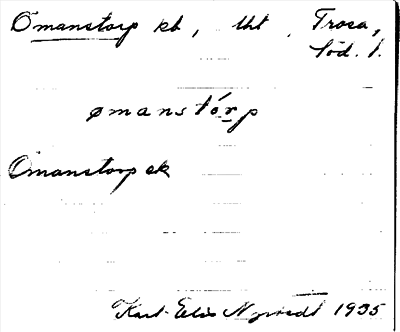 Ömanstorp kb, tht. Trosa,
Söd. l.
ømanstórp
Ömanstorp ek
Karl-Elis Nyqvist 1935